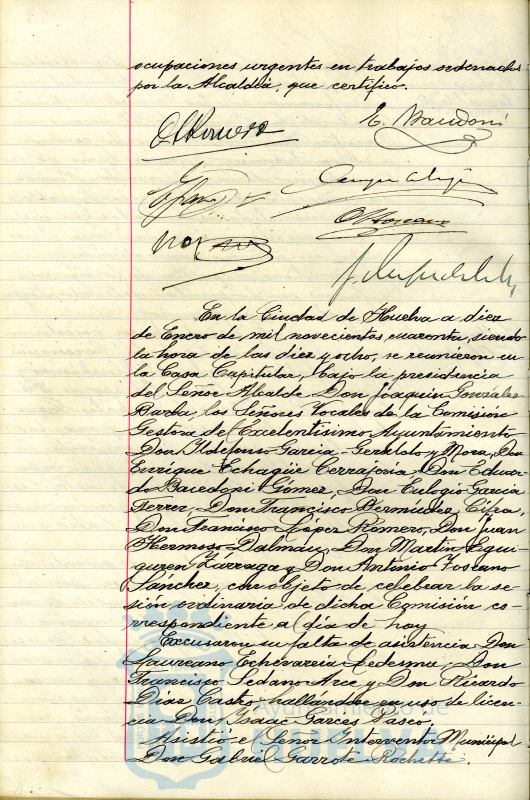 ocupaciones urgentes en trabajos ordenados
por la Alcaldía, que certifico.
En la Ciudad de Huelva a diez
de Enero de mil novecientos cuarenta, siendo
la hora de las diez y ocho, se reunieron en
la Casa Capitular, bajo la presidencia
del Señor Alcalde Don Joaquín González
Barba, los Señores Vocales de la Comisión
Gestora del Excelentísimo Ayuntamiento
Don Ildefonso García-Geralato y Mora, Don
Enrique Echagüe Cerrajería, Don Eduar-
do Bacedoni Gómez, Don Eulogio García
Ferrer, Don Francisco Bermúdez Cifra,
Don Francisco López Romero, Don Juan
Hermoso Dalmau, Don Martín Egui-
guren Larraga y Don Antonio Toscano
Sánchez, con objeto de celebrar la se-
sión ordinaria de dicha Comisión co-
rrespondiente al día de hoy
Excusaron su falta de asistencia Don
Laureano Echevarría Ledesma, Don
Francisco Sedano Arce y Don Ricardo
Díaz Castro, hallándose en uso de licen-
cia Don Isaac Garcés Pasco.
Asistió el Señor Interventor Municipal
Don Gabriel Garrote Rochette.
Ayuntamiento de
HUELVA